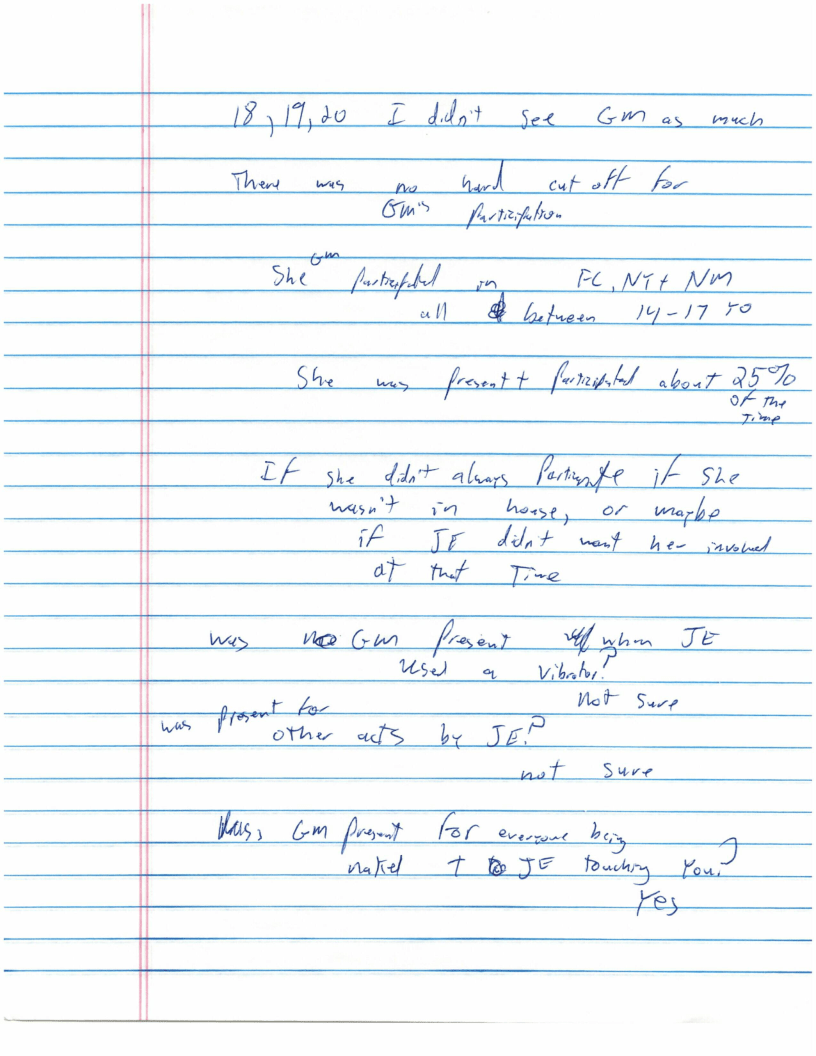 18, 19, 20 I didn't see GM as much
There was no hard cut off for
GM's participation
GM
She participated in FL, NY + NM
all between 14-17 YO
She was present + participated about 25%
of the
Time
If she didn't always participate if she
wasn't in house, or maybe
if JE didn't want her involved
at that Time
Was GM present when JE
used a vibrator?
not sure
was present for
other acts by JE?
not sure
Was, GM present for everyone being
naked + JE touching you?
Yes